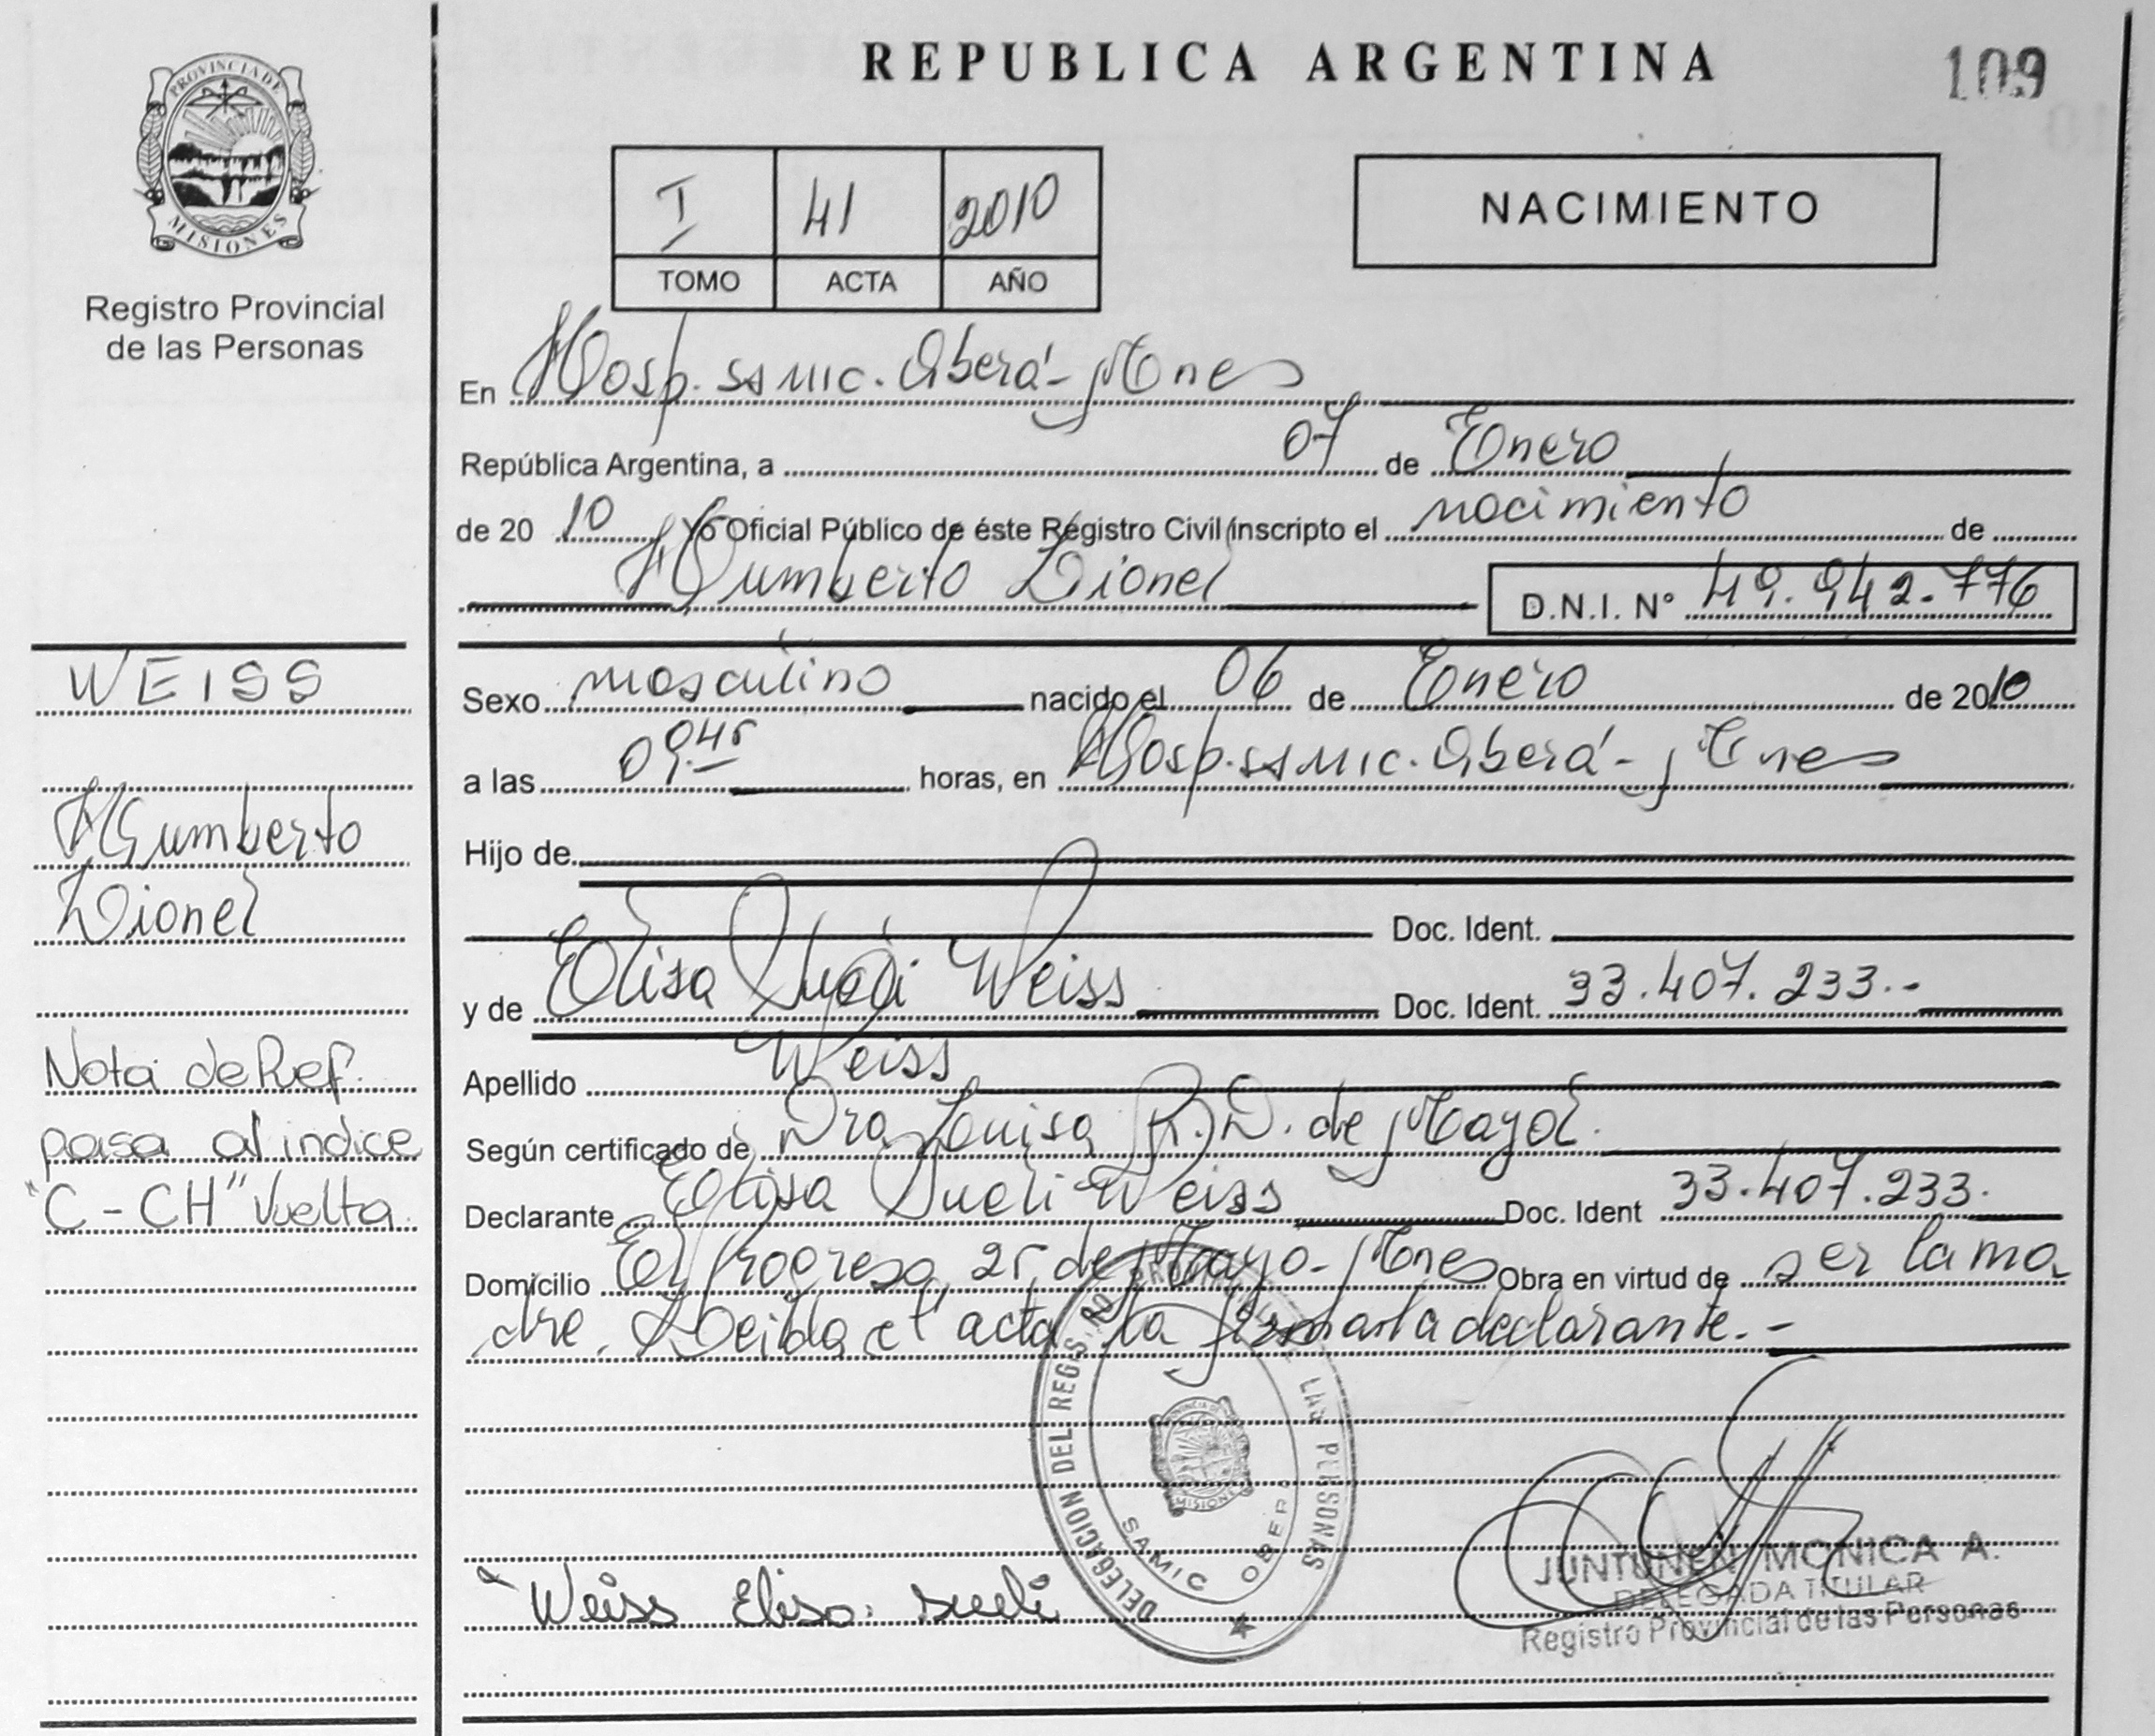 REPUBLICA ARGENTINA
109
PROVINCIA DE
MISIONES
Registro Provincial
de las Personas
I 41 2010
TOMO ACTA AÑO
NACIMIENTO
En Hosp. SAMIC. Oberá - Mnes
República Argentina, a 07 de Enero
de 20 10 Yo Oficial Público de éste Registro Civil inscripto el nacimiento de
Humberto Lionel D.N.I. N° 49.942.776
Sexo masculino nacido el 06 de Enero de 2010
a las 09.45 horas, en Hosp. SAMIC. Oberá - Mnes
Hijo de
Doc. Ident.
y de Elisa Sueli Weiss Doc. Ident. 33.407.233.-
Apellido Weiss
Según certificado de Dra Louisa R. D. de Mayol.
Declarante Elisa Sueli Weiss Doc. Ident 33.407.233.
Domicilio El Progreso, 25 de Mayo - Mnes Obra en virtud de ser la ma
dre. Leida el acta la firma la declarante.-
WEISS
Humberto
Lionel
Nota de Ref.
pasa al indice
"C - CH" Vuelta.
DELEGACION DEL REGISTRO PROVINCIAL DE LAS PERSONAS
MISIONES
SAMIC OBERA
Weiss Elisa sueli
JUNTUNEN MONICA A.
DELEGADA TITULAR
Registro Provincial de las Personas